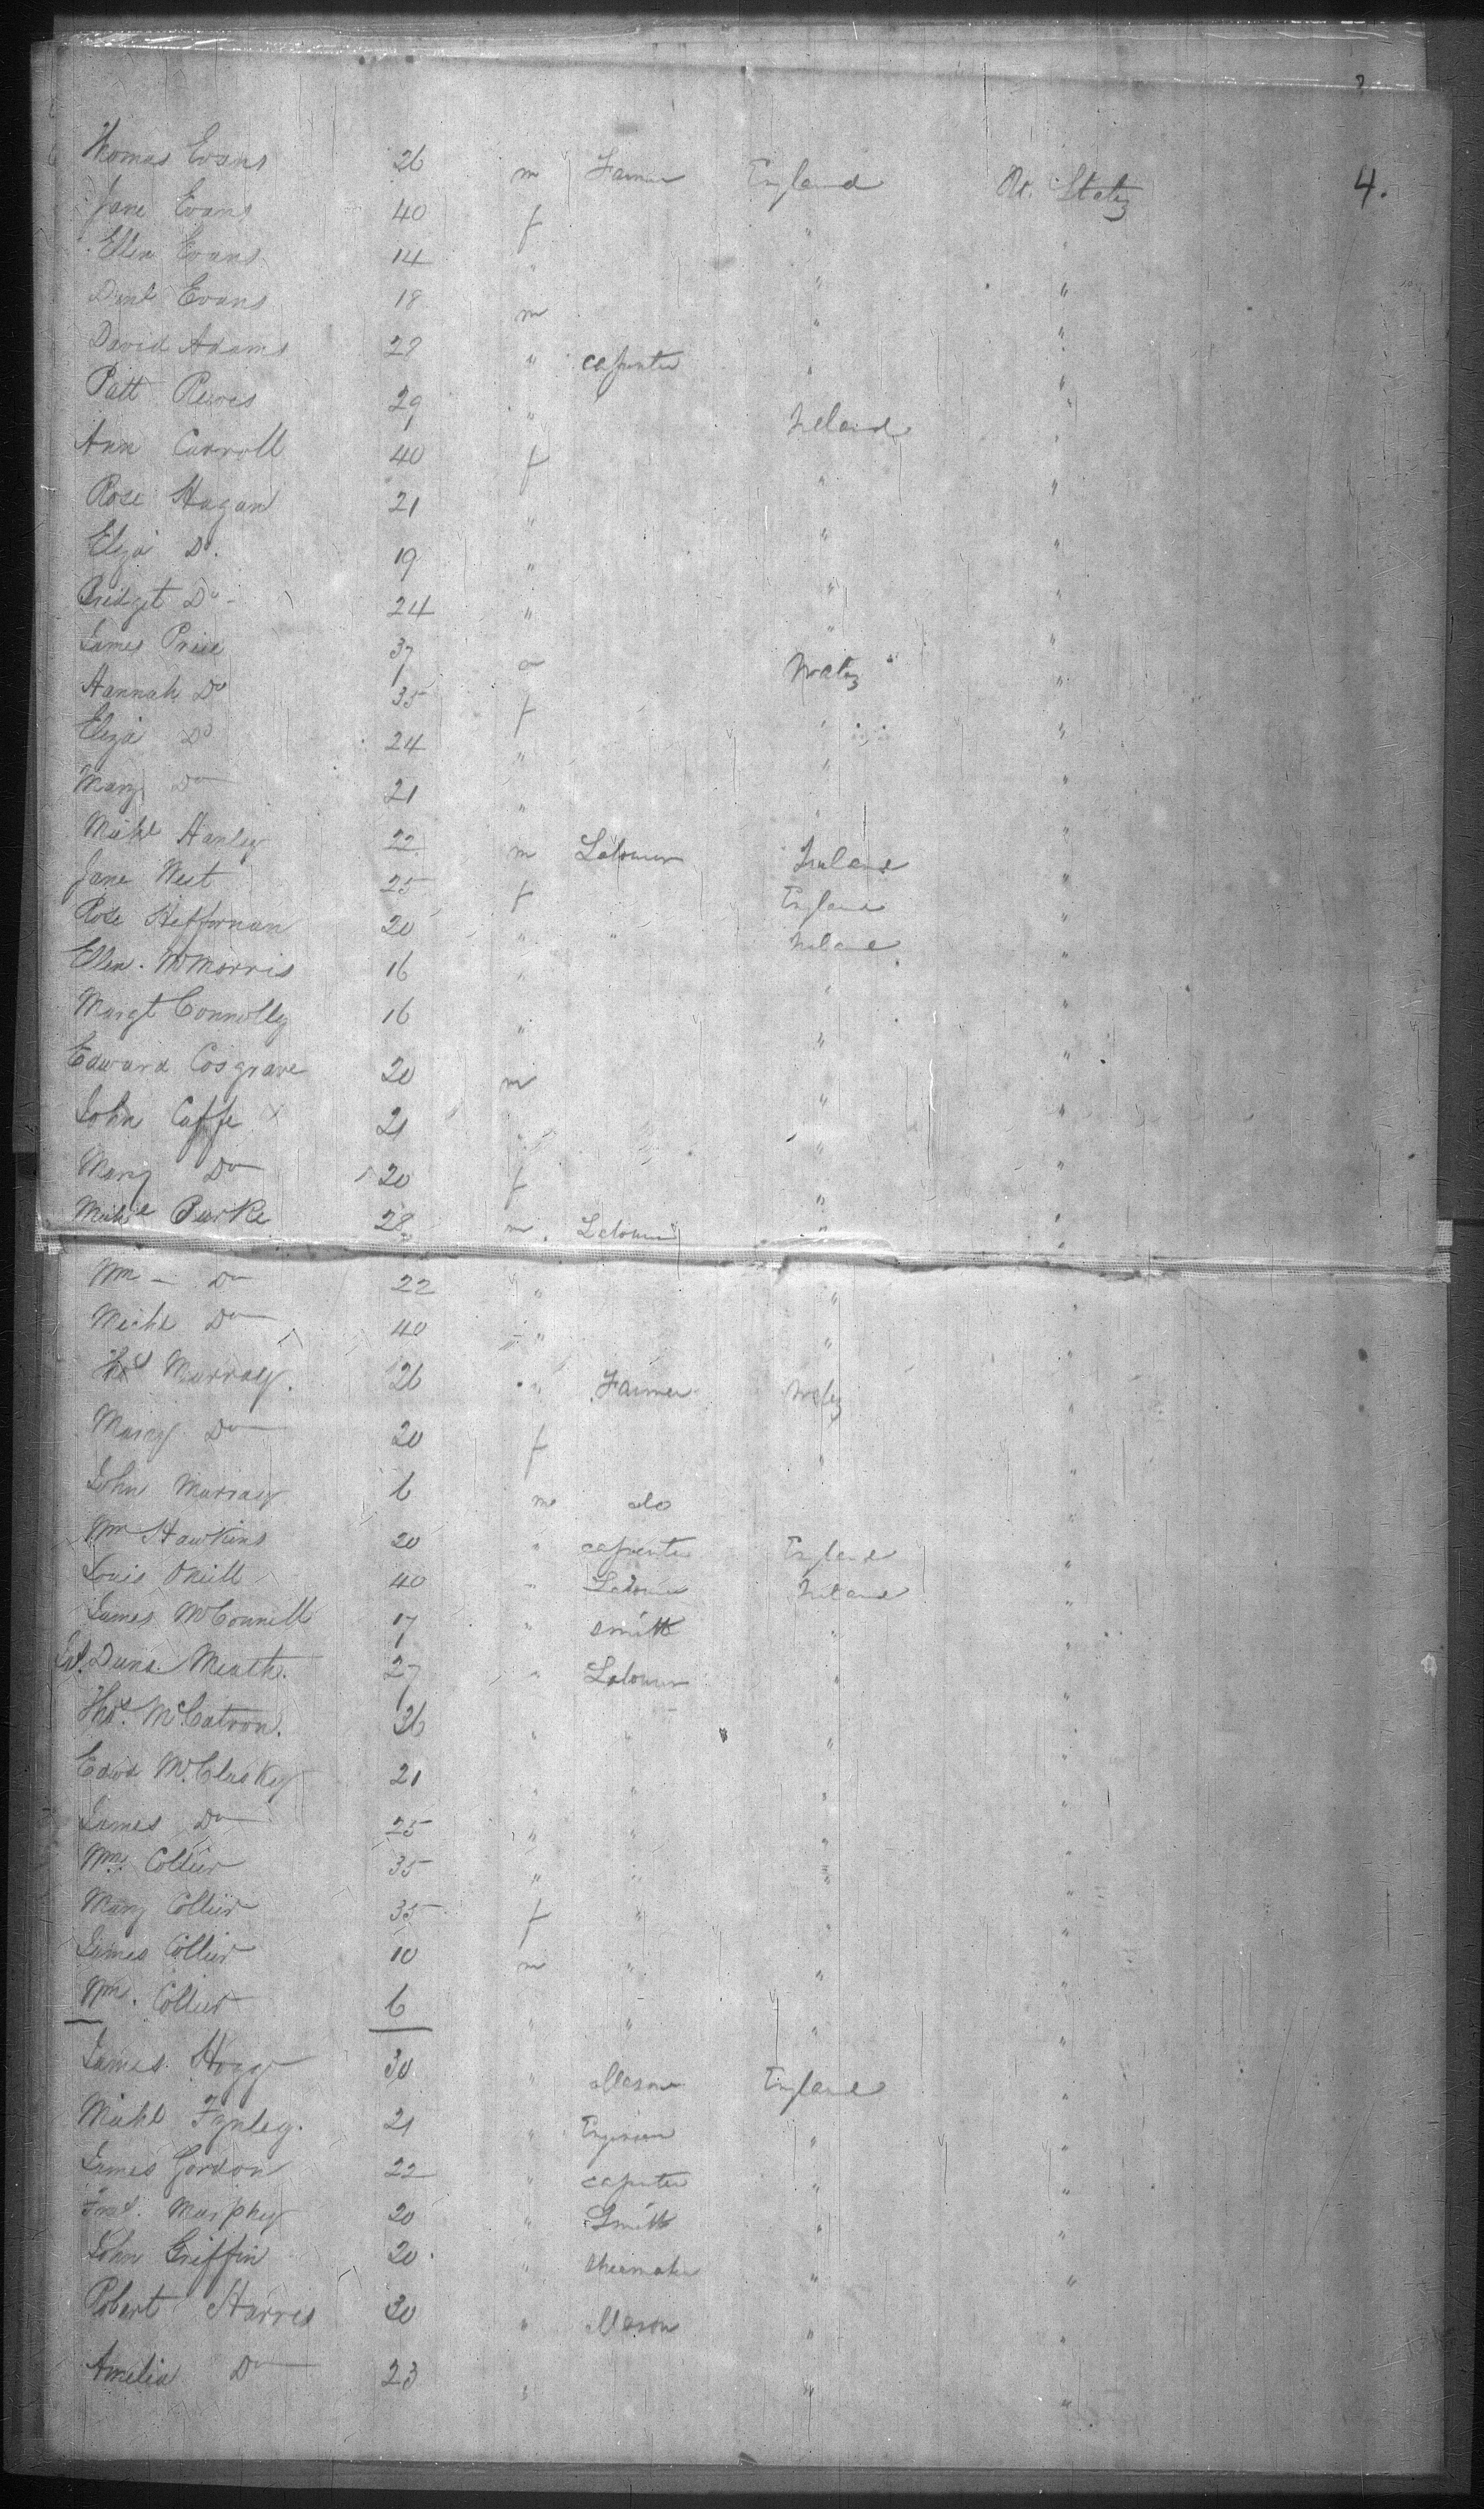 4.
Thomas Evans 26 m Farmer England Ut. States
Jane Evans 40 f " "
Ellen Evans 14 " " "
Danl Evans 18 m " "
David Adams 28 " carpenter " "
Patt Reeves 29 " Ireland "
Ann Carroll 40 f " "
Rose Hagan 21 " " "
Eliza Do. 19 " " "
Bridget Do - 24 " " "
James Price 37 m Wales "
Hannah Do 35 f " "
Eliza Do 24 " " "
Mary Do 21 " " "
Michl Hanley 22 m Labourer Ireland "
Jane West 25 f England "
Rose Heffernan 20 " " Ireland "
Ellen McMorris 16 " " "
Margt Connolly 16 " " "
Edward Cosgrave 20 m " "
John Caffe 21 " " "
Mary Do 20 f " "
Michl Burke 28 m Labourer " "
Wm - Do 22 " " "
Michl Do 40 " " "
Thos Murray. 26 " Farmer Wales "
Mary Do 20 f " "
John Murray 6 m do "
Wm Hawkins 20 " carpenter England "
Louis ONeill 40 " Labourer Ireland "
James McConnell 17 " smith " "
Meath. 27 " Labourer " "
Thos. McCatron. 36 " " " "
Edwd McCluskey 21 " " " "
James Do 25 " " " "
Wm. Collier 35 " " " "
Mary Collier 35 f " " "
James Collier 10 m " " "
Wm. Collier 6 " " " "
James Hogg 30 " Mason England "
Michl Fynley. 21 " Engineer " "
James Gordon 22 " carpenter " "
Murphy 20 " Smith " "
John Griffin 20. " shoemaker " "
Robert Harris 30 " Mason " "
Amelia Do 23 " " "